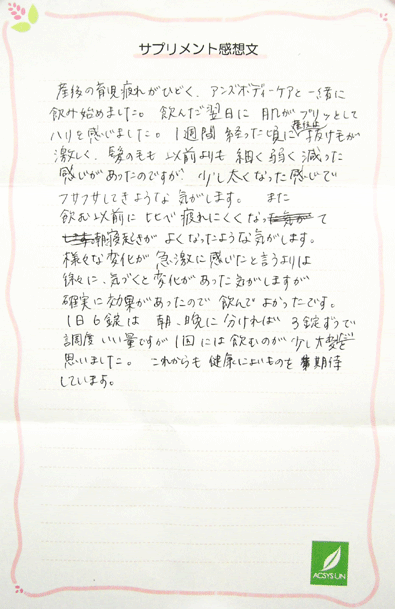 サプリメント感想文
産後の育児疲れがひどく、アンズボディーケアと一緒に
飲み始めました。飲んだ翌日に肌がプリッとして
ハリを感じました。1週間経った頃に産後は抜け毛が
激しく、髪の毛も以前よりも細く弱く減った
感じがあったのですが、少し太くなった感じで
フサフサしてきような気がします。また
飲む以前に比べ疲れにくくなって
朝寝起きがよくなったような気がします。
様々な変化が急激に感じたと言うよりは
徐々に、気づくと変化があった気がしますが
確実に効果があったので飲んでよかったです。
1日6錠は朝、晩に分ければ3錠ずつで
調度いい量ですが1回には飲むのが少し大変だと
思いました。これからも健康によいものを期待
しています。
ACSYS LIN